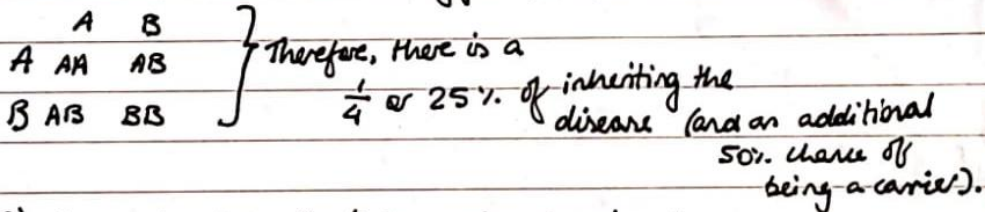 A B
A AA AB
B AB BB
Therefore, there is a
1/4 or 25% of inheriting the
disease (and an additional
50% chance of
being a carrier).